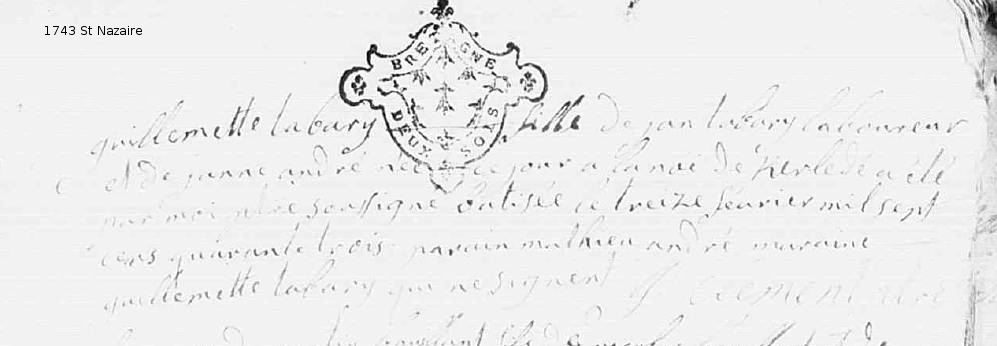 1743 St Nazaire
BRETAGNE
DEUX SOLS
guillemette tabary fille de jan tabary laboureur
et de janne andré née ce jour a la noe de kerlede a été
par moi ptre soussigné batisée le treize feuvrier mil sept
cens quarante trois parain mathieu andré maraine
guillemette tabary qui ne signent J clement ptre